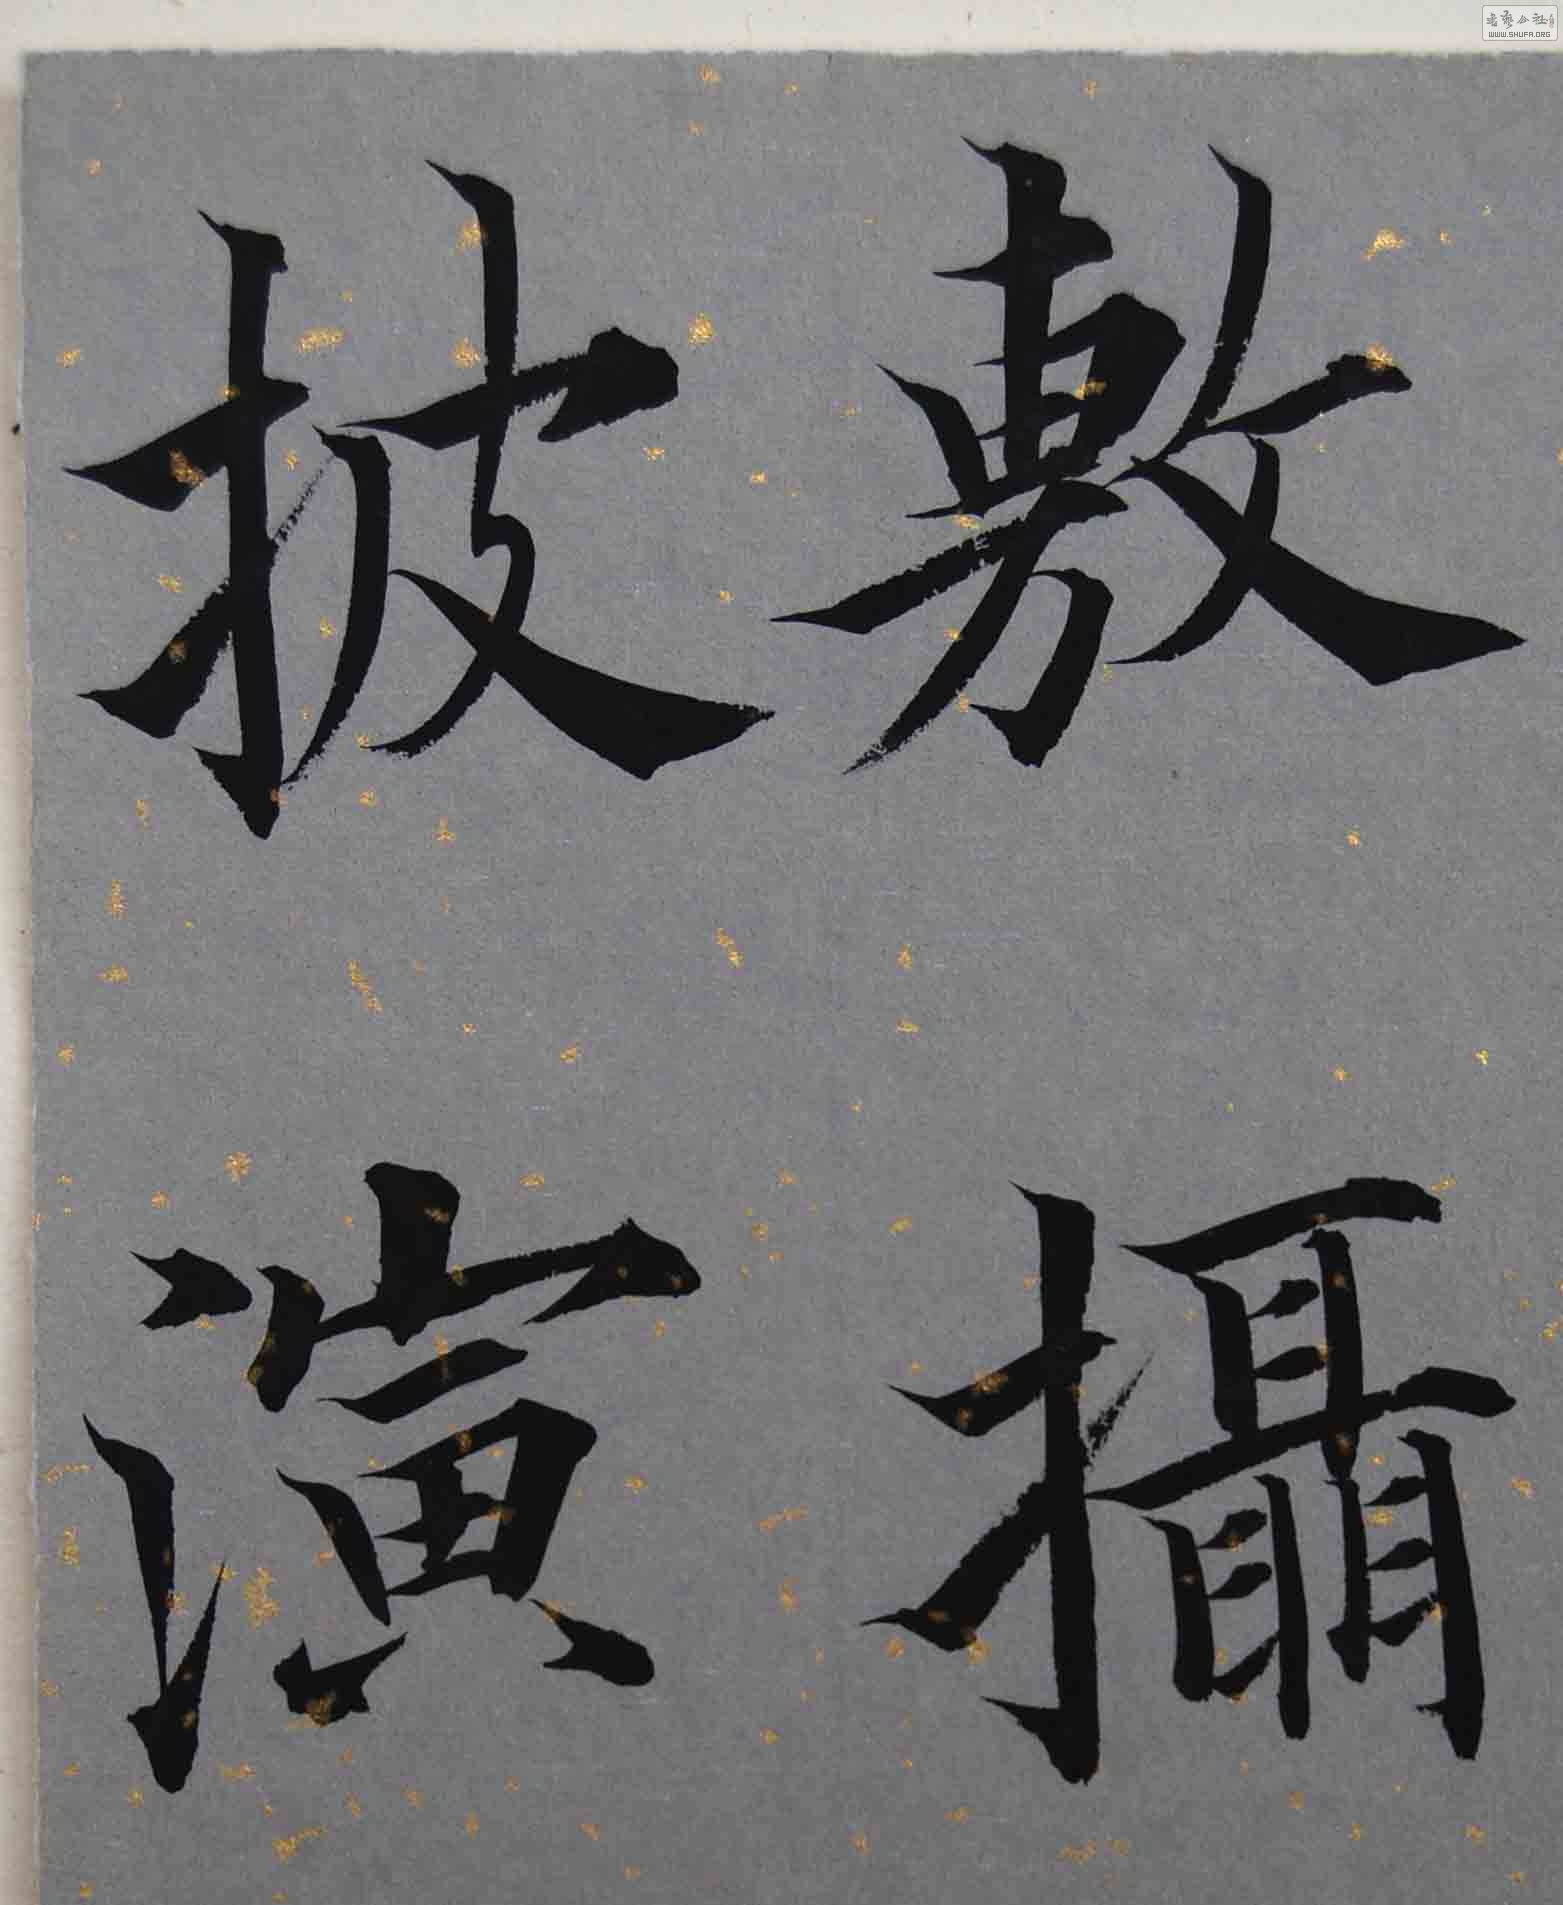 敷攝
披演
书艺公社
WWW.SHUFA.ORG